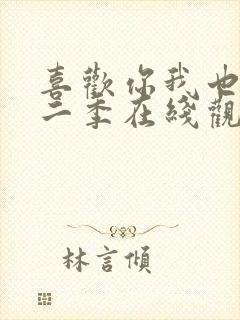 喜歡你我也
二季在綫觀
林言傾